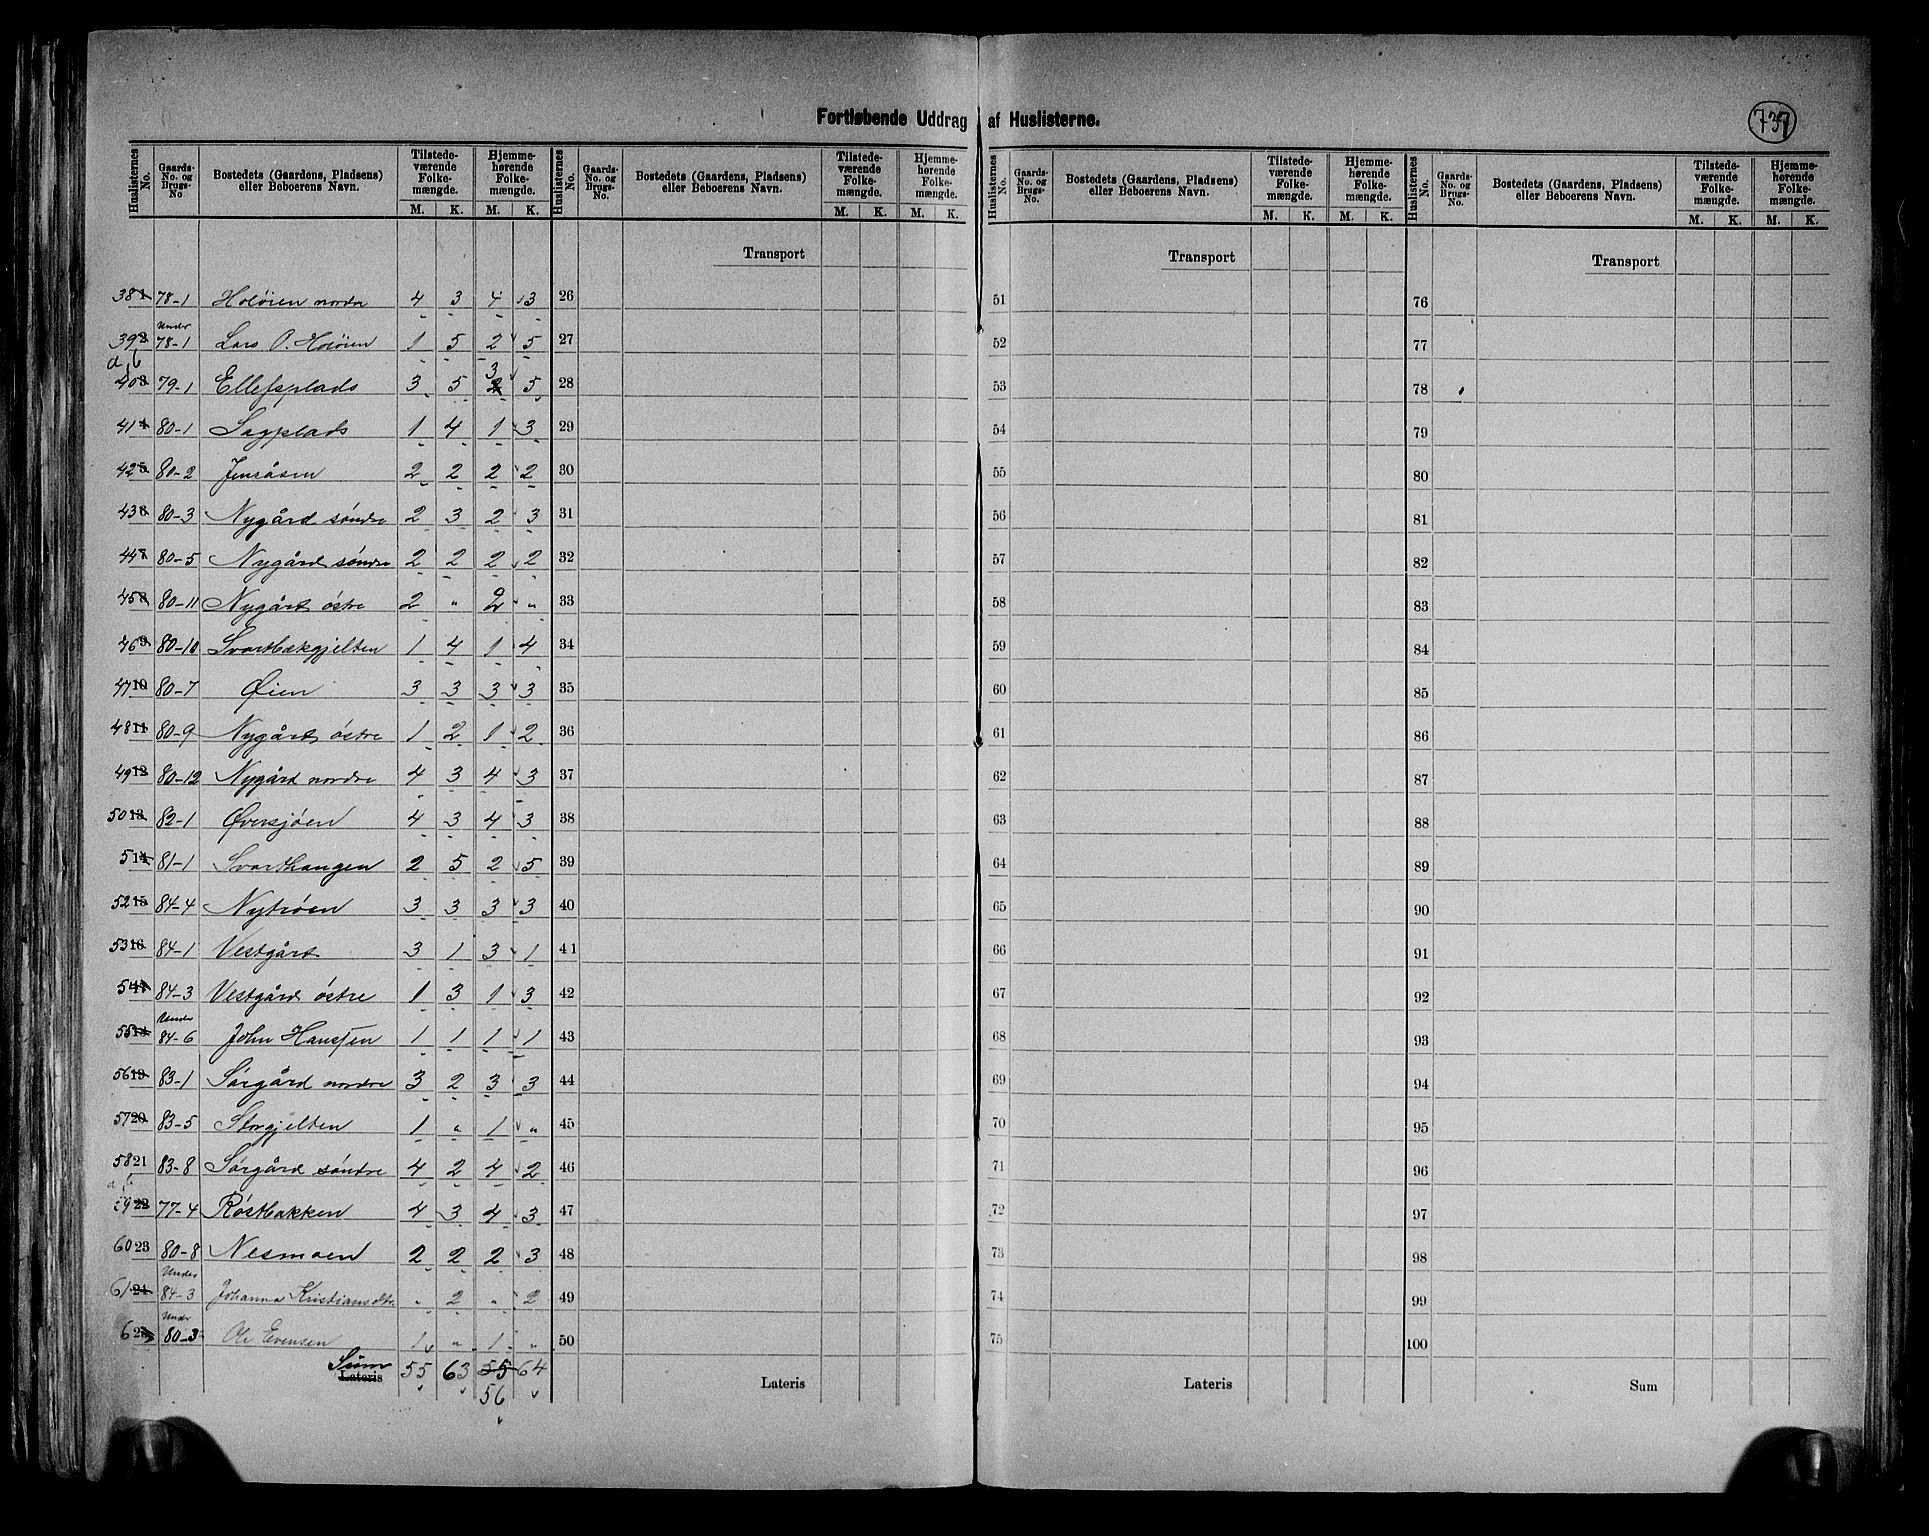 Fortløbende Uddrag af Huslisterne.
737
Huslisternes No. | Gaards-No. og Brugs-No | Bostedets (Gaardens, Pladsens) eller Beboerens Navn. | Tilstedeværende Folkemængde. M. K. | Hjemmehørende Folkemængde. M. K.
Huslisternes No. | Gaards-No. og Brugs-No. | Bostedets (Gaardens, Pladsens) eller Beboerens Navn. | Tilstedeværende Folkemængde. M. K. | Hjemmehørende Folkemængde. M. K.
Huslisternes No. | Gaards-No. og Brugs-No. | Bostedets (Gaardens, Pladsens) eller Beboerens Navn. | Tilstedeværende Folkemængde. M. K. | Hjemmehørende Folkemængde. M. K.
Huslisternes No. | Gaards-No. og Brugs-No. | Bostedets (Gaardens, Pladsens) eller Beboerens Navn. | Tilstedeværende Folkemængde. M. K. | Hjemmehørende Folkemængde. M. K.
Transport Transport Transport
38 1 78-1 Holøien nordre 4 3 4 3 26 51 76
39 2 Under 78-1 Lars O. Holøien 1 5 2 5 27 52 77
a, b
40 3 79-1 Ellefsplads 3 5 2 3 5 28 53 78
41 4 80-1 Sagplads 1 4 1 3 29 54 79
42 5 80-2 Jensåsen 2 2 2 2 30 55 80
43 6 80-3 Nygård søndre 2 3 2 3 31 56 81
44 7 80-5 Nygård søndre 2 2 2 2 32 57 82
45 8 80-11 Nygård østre 2 " 2 " 33 58 83
46 9 80-10 Svartbækgjelten 1 4 1 4 34 59 84
47 10 80-7 Øien 3 3 3 3 35 60 85
48 11 80-9 Nygård østre 1 2 1 2 36 61 86
49 12 80-12 Nygård nordre 4 3 4 3 37 62 87
50 13 82-1 Øversjøen 4 3 4 3 38 63 88
51 14 81-1 Svarthaugen 2 5 2 5 39 64 89
52 15 84-4 Nytrøen 3 3 3 3 40 65 90
53 16 84-1 Vestgård 3 1 3 1 41 66 91
54 17 84-3 Vestgård østre 1 3 1 3 42 67 92
55 18 Under 84-6 John Hanssen 1 1 1 1 43 68 93
56 19 83-1 Sørgård nordre 3 2 3 3 44 69 94
57 20 83-5 Storgjelten 1 " 1 " 45 70 95
58 21 83-8 Sørgård søndre 4 2 4 2 46 71 96
a, b
59 22 77-4 Røstbakken 4 3 4 3 47 72 97
60 23 80-8 Nesmoen 2 2 2 3 48 73 98
61 24 Under 84-3 Johanna Kristiansdtr " 2 " 2 49 74 99
62 25 Under 80-3 Ole Evensen 1 " 1 " 50 75 100
Sum Lateris 55 63 55 64 Lateris Lateris Sum
56